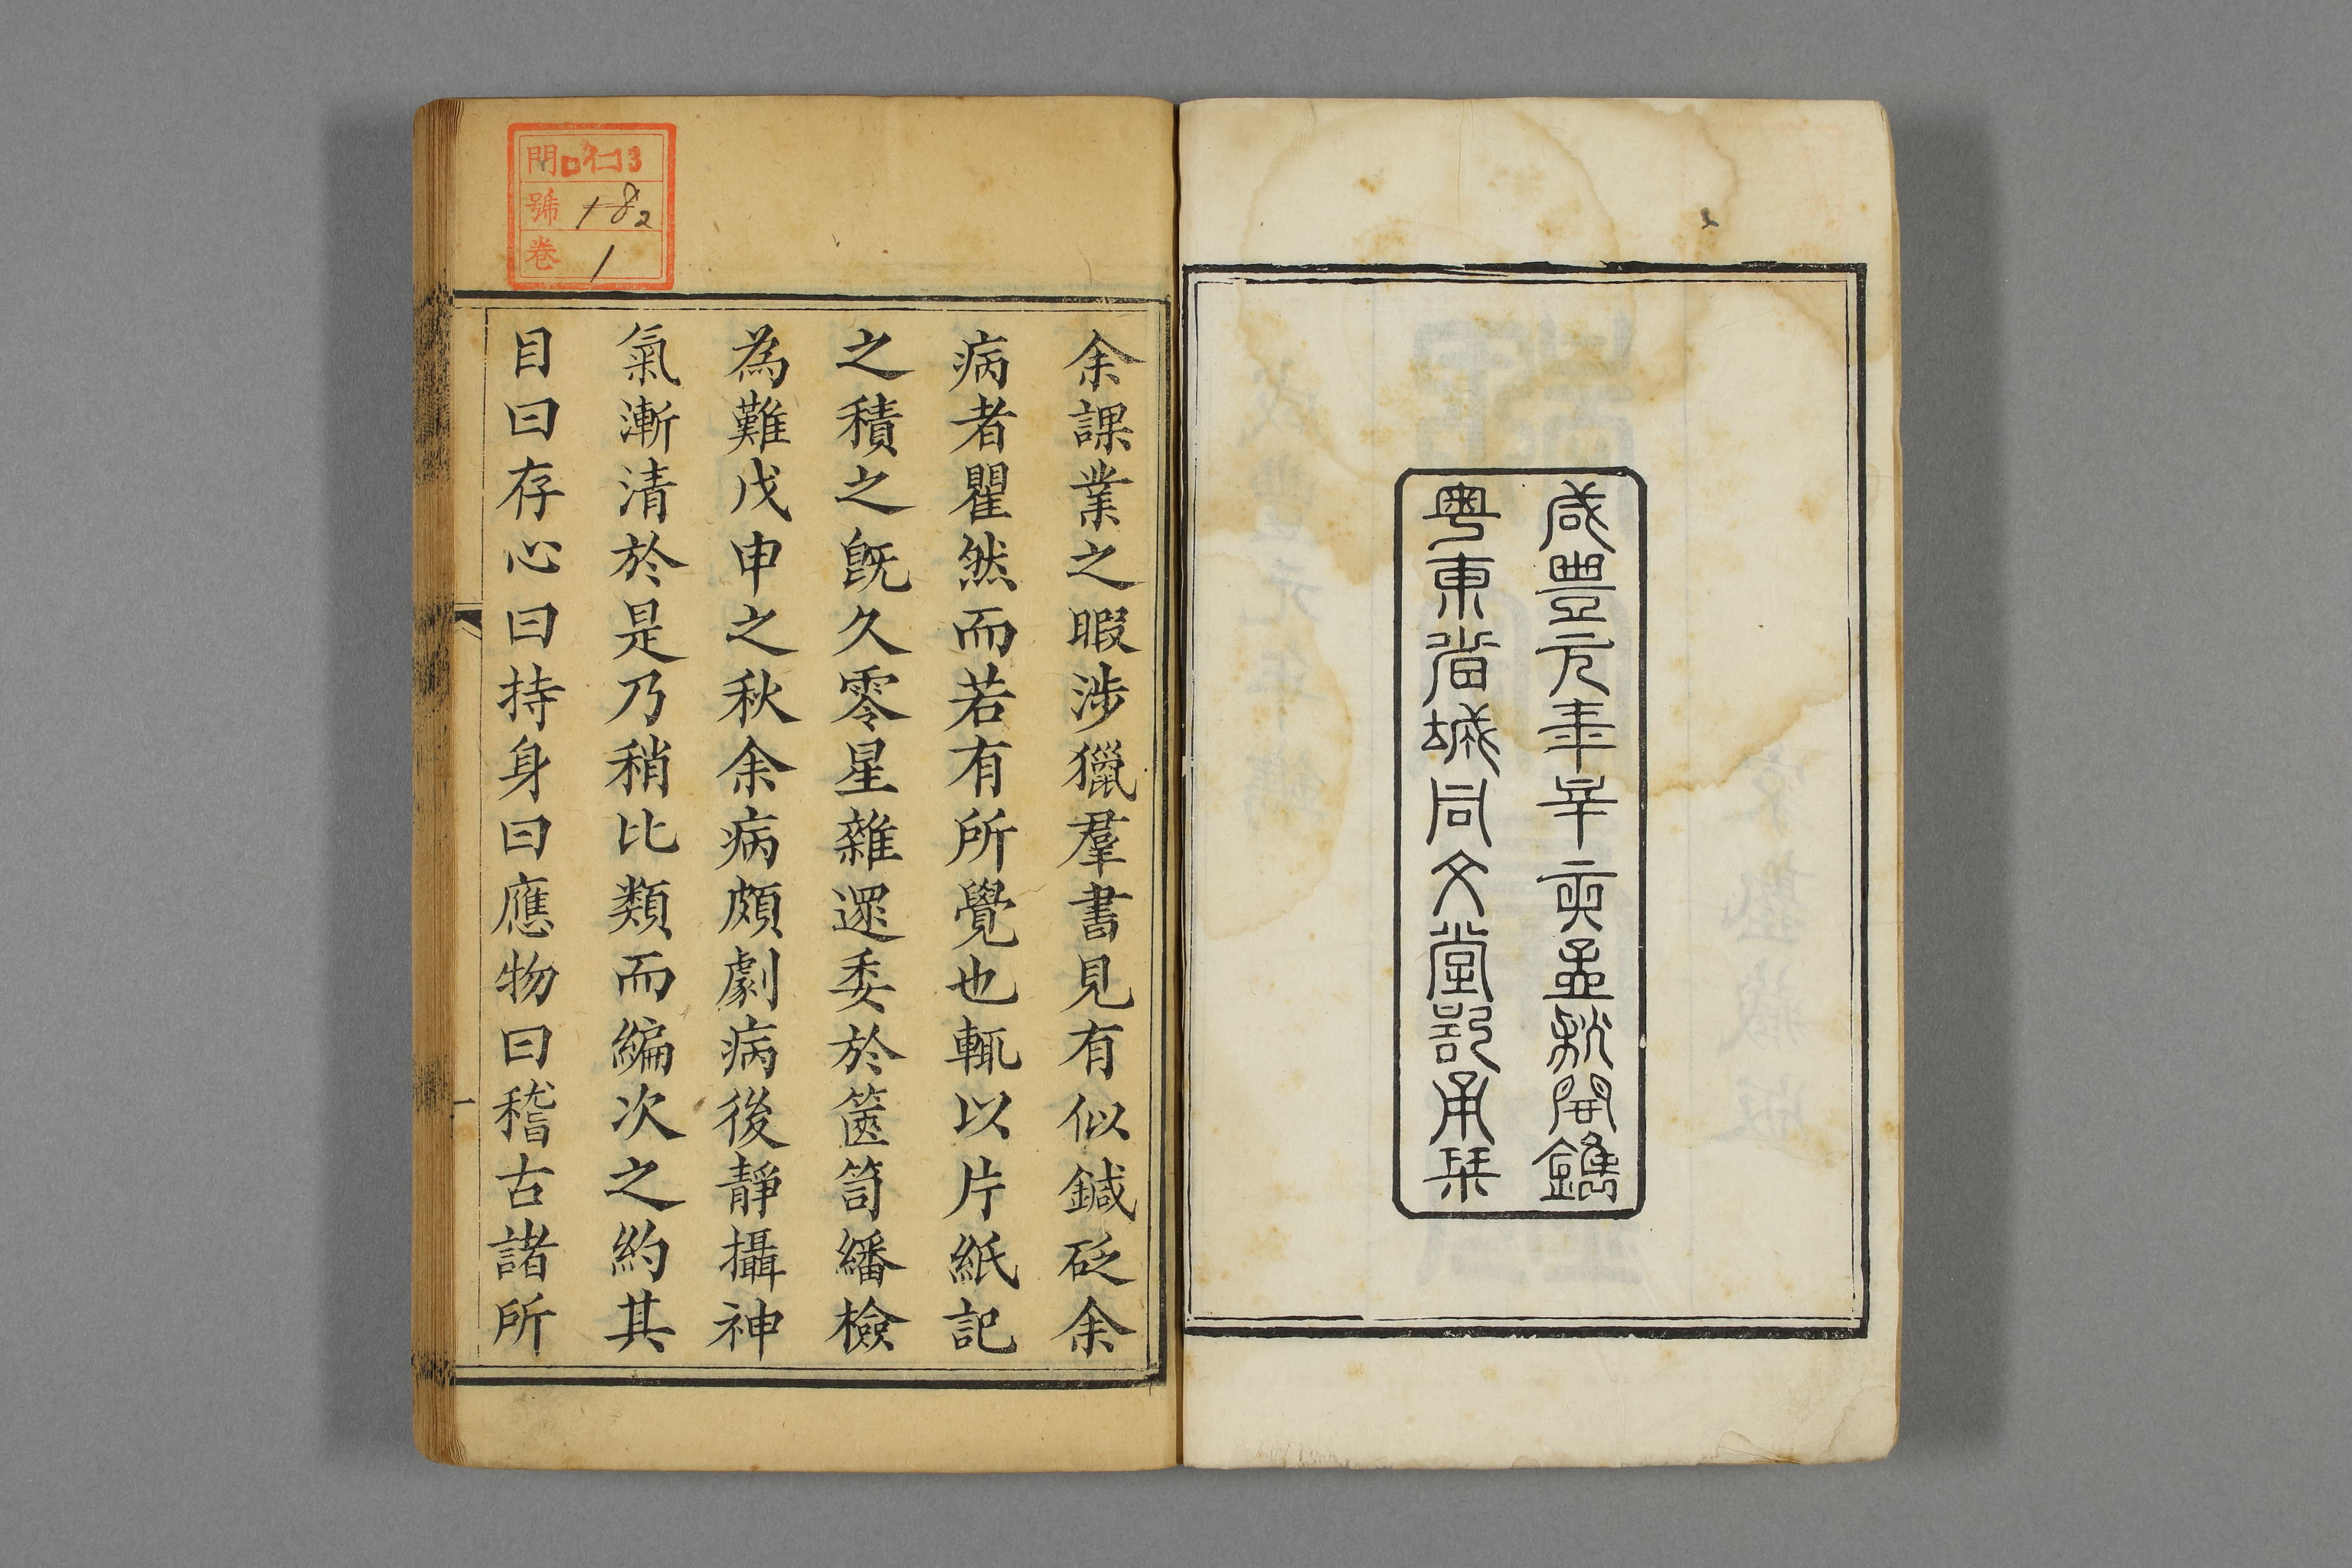 咸豐元年辛亥孟秋開鐫
粵東省城同文堂敬刊栞
余課業之暇涉獵羣書見有似鍼砭余
病者瞿然而若有所覺也輒以片紙記
之積之既久零星雜遝委於篋笥繙檢
為難戊申之秋余病頗劇病後靜攝神
氣漸清於是乃稍比類而編次之約其
目曰存心曰持身曰應物曰稽古諸所
門口仁13
號 182
卷 1